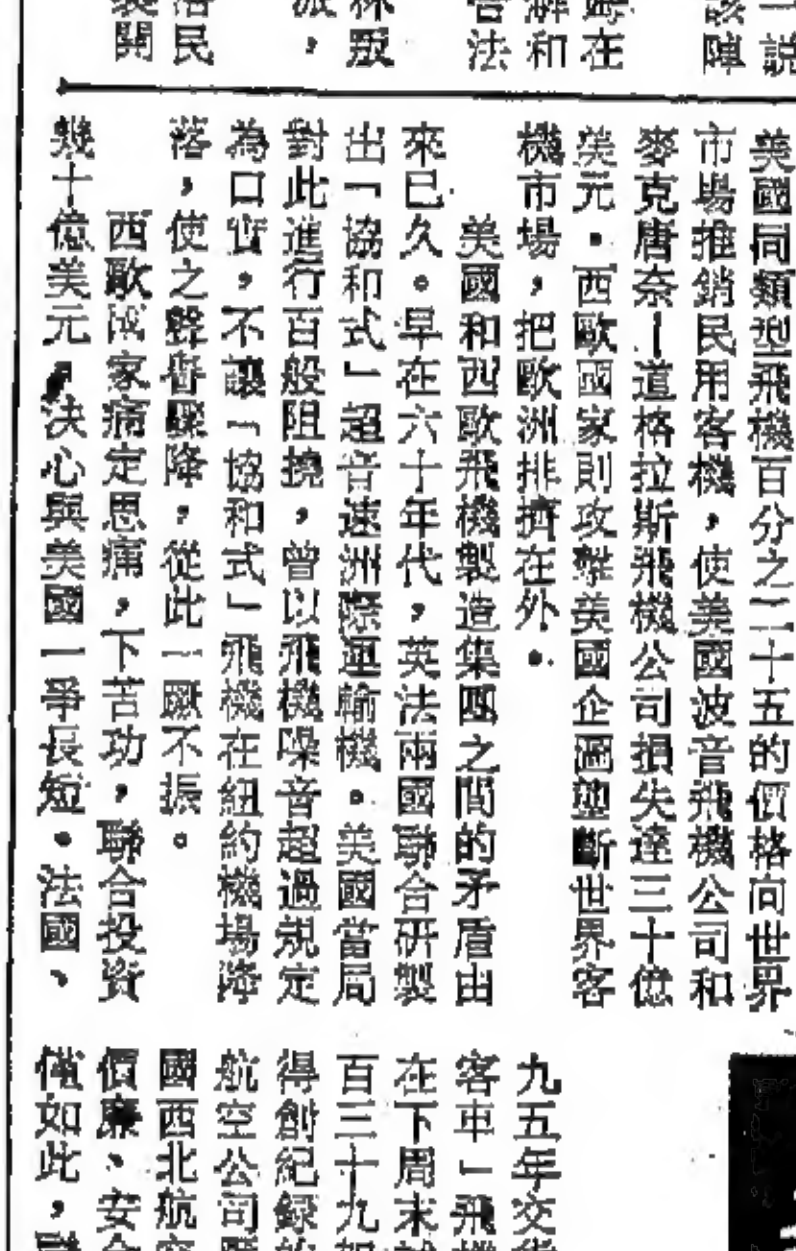 一説
該陣
歸在
解和
告法
林叛
派，
落民
裝開
美國同類型飛機百分之二十五的價格向世界
市場推銷民用客機，使美國波音飛機公司和
麥克唐奈—道格拉斯飛機公司損失達三十億
美元。西歐國家則攻擊美國企圖壟斷世界客
機市場，把歐洲排擠在外。
美國和西歐飛機製造集團之間的矛盾由
來已久。早在六十年代，英法兩國聯合研製
出「協和式」超音速洲際運輸機。美國當局
對此進行百般阻撓，曾以飛機噪音超過規定
為口實，不讓「協和式」飛機在紐約機場降
落，使之聲譽驟降，從此一蹶不振。
西歐國家痛定思痛，下苦功，聯合投資
幾十億美元，決心與美國一爭長短。法國、
九五年交貨
客車」飛機
在下周末
百三十九架
得創紀錄的
航空公司
國西北航空
價廉、安全
僅如此，